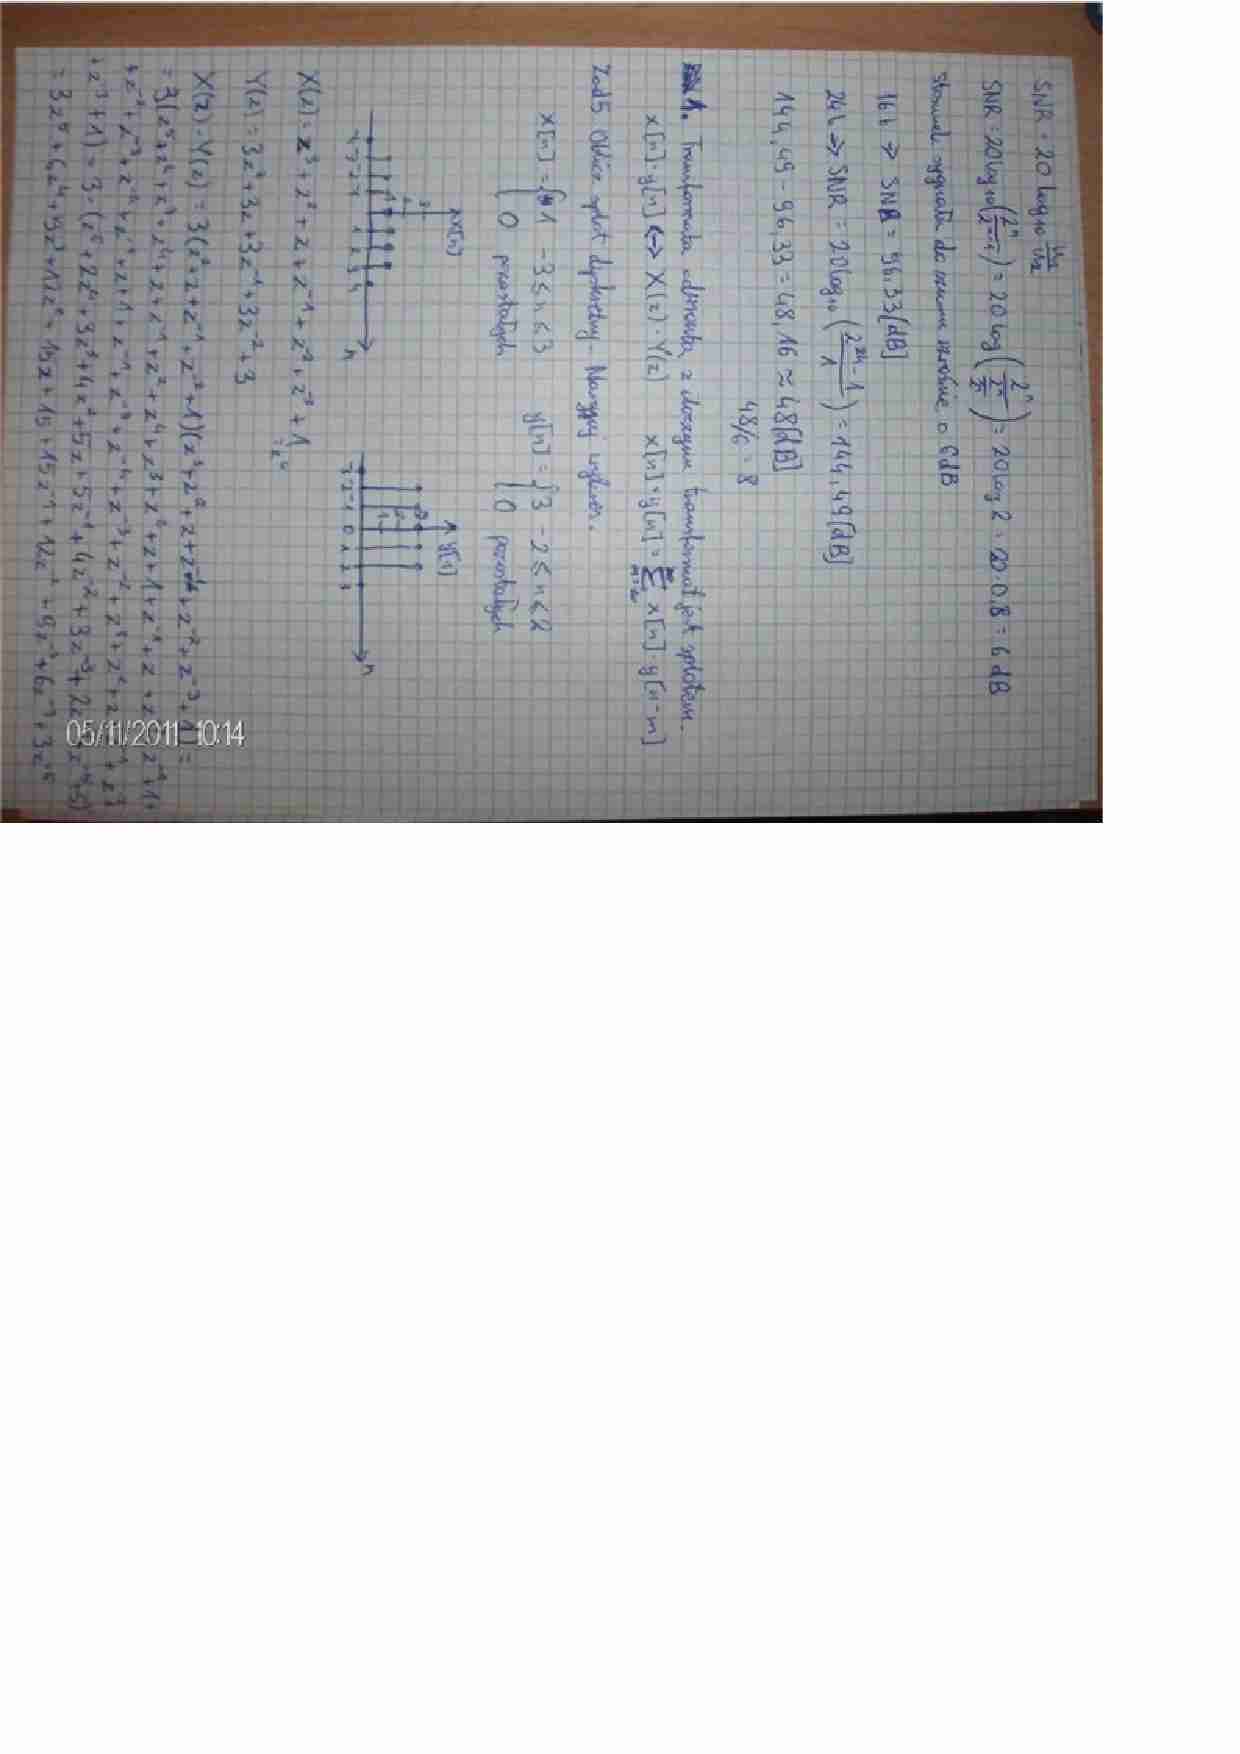 SNR = 20 log₁₀ U₁/U₂
SNR = 20 log₁₀ (2ⁿ/2ⁿ⁻¹) = 20 log (2ⁿ/(2ⁿ/2)) = 20 log 2 = 20 · 0,8 = 6 dB
sygnału do szumu o 6 dB
16 b ⇒ SNR = 96,33 [dB]
24 b ⇒ SNR = 20 log₁₀ ((2²⁴ - 1)/1) = 144,49 [dB]
144,49 - 96,33 = 48,16 ≈ 48 [dB]
48/6 = 8
1. Transformata odwrotna z iloczynu transformat jest splotem.
x[n] · y[n] <-> X(z) · Y(z) x[n] * y[n] = Σ x[n] · y[n-m]
Zad 5 Oblicz splot dyskretny. Narysuj wykres.
x[n] = { 1 -3 ≤ n ≤ 3 y[n] = { 3 -2 ≤ n ≤ 2
0 pozostałych 0 pozostałych
x[n] y[n]
n n
X(z) = z³ + z² + z + z⁻¹ + z⁻² + z⁻³ + 1
= z⁰
Y(z) = 3z² + 3z + 3z⁻¹ + 3z⁻² + 3
X(z) · Y(z) = 3(z² + z + z⁻¹ + z⁻² + 1)(z³ + z² + z + z⁻¹ + z⁻² + z⁻³ + 1) =
= 3(z⁵ + z⁴ + z³
+ z⁻³ + 1) = 3 · (z⁵ + 2z⁴ + 3z³ + 4z² + 5z + 5z⁻¹ + 4z⁻² + 3z⁻³ + 2z⁻⁴ + z⁻⁵ + 5)
= 3z⁵ + 6z⁴ + 9z³ + 12z² + 15z + 15 + 15z⁻¹ + 12z⁻² + 9z⁻³ + 6z⁻³ + 3z⁻⁵
05/11/2011 10:14